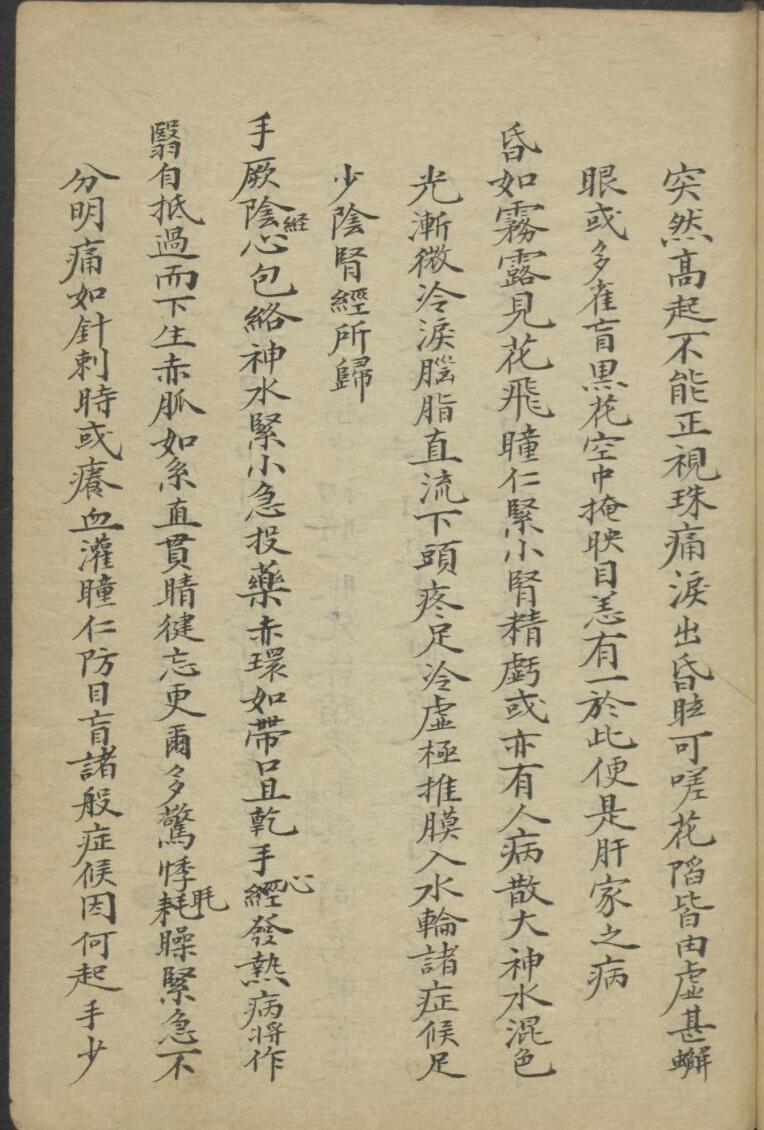 突然高起不能正視珠痛淚出昏眩可嗟花陷皆由虛甚蠏
眼或多雀盲黑花空中掩映目恙有一於此便是肝家之病
昏如霧露見花飛瞳仁緊小腎精虧或亦有人病散大神水混色
光漸微冷淚腦脂直流下頭疼足冷虛極推膜入水輪諸症候足
少陰腎經所歸
手厥陰經心包絡神水緊小急投藥赤環如帶口且乾手心經發熱病將作
翳自抵過而下生赤脈如糸直貫睛健忘更爾多驚悸耗眊矂緊急不
分明痛如針刺時或癢血灌瞳仁防目盲諸般症候因何起手少